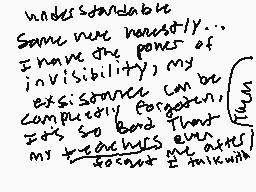 understandable
Same here honestly...
I have the power of
invisibility, my
exsistance can be
completly forgoten,
It's so Bad That
my teachers even
forget me after
I talk with
them